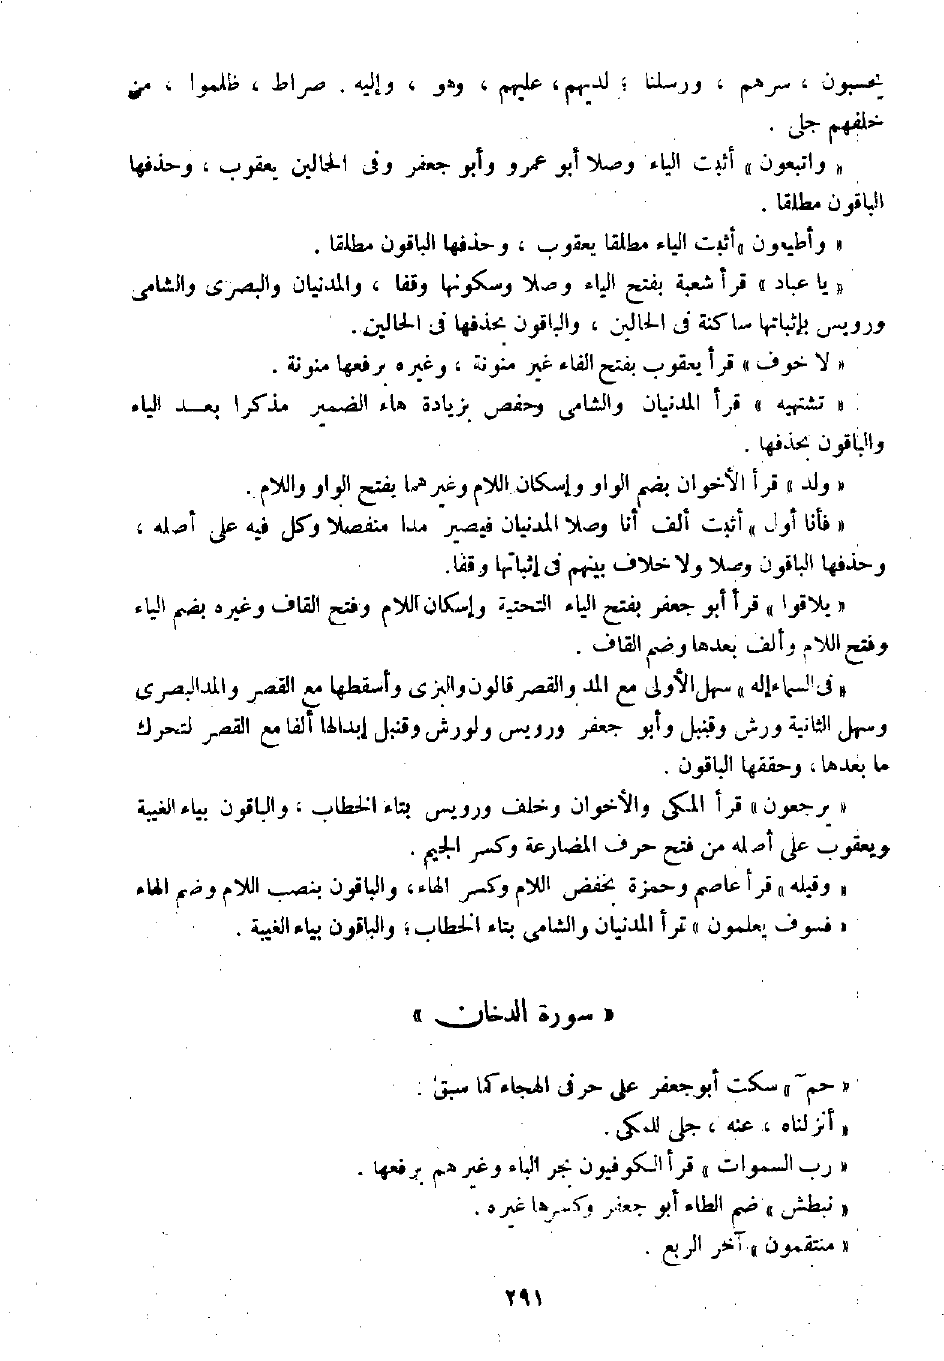 يحسبون ، سرهم ، ورسلنا ؛ لديهم، عليهم ، وهو ، وإليه . صراط ، ظلموا ، من
خلفهم جلى .
« واتبعون » أثبت الياء وصلا أبو عمرو وأبو جعفر وفى الحالين يعقوب ، وحذفها
الباقون مطلقا .
« وأطيعون » أثبت الياء مطلقا يعقوب ، وحذفها الباقون مطلقا .
« يا عباد » قرأ شعبة بفتح الياء وصلا وسكونها وقفا ، والمدنيان والبصرى والشامى
ورويس بإثباتها ساكنة فى الحالين ، والباقون بحذفها فى الحالين .
« لا خوف » قرأ يعقوب بفتح الفاء غير منونة ، وغيره برفعها منونة .
« تشتهيه » قرأ المدنيان والشامى وحفص بزيادة هاء الضمير مذكرا بعد الياء
والباقون بحذفها .
« ولد » قرأ الأخوان بضم الواو وإسكان اللام وغيرهما بفتح الواو واللام .
« فأنا أول » أثبت ألف أنا وصلا المدنيان فيصير مدا منفصلا وكل فيه على أصله ،
وحذفها الباقون وصلا ولا خلاف بينهم فى إثباتها وقفا.
« يلاقوا » قرأ أبو جعفر بفتح الياء التحتية وإسكان اللام وفتح القاف وغيره بضم الياء
وفتح اللام وألف بعدها وضم القاف .
« فى السماء إله » سهل الأولى مع المد والقصر قالون والبزى وأسقطها مع القصر والمد البصرى
وسهل الثانية ورش وقنبل وأبو جعفر ورويس ولورش وقنبل إبدالها ألفا مع القصر لتحرك
ما بعدها ، وحققها الباقون .
« يرجعون » قرأ المكى والأخوان وخلف ورويس بتاء الخطاب ، والباقون بياء الغيبة
ويعقوب على أصله من فتح حرف المضارعة وكسر الجيم .
« وقيله » قرأ عاصم وحمزة بخفض اللام وكسر الهاء، والباقون بنصب اللام وضم الهاء
« فسوف يعلمون » قرأ المدنيان والشامى بتاء الخطاب ؛ والباقون بياء الغيبة .
« سورة الدخان »
« حمٓ » سكت أبو جعفر على حرفى الهجاء كما سبق .
« أنزلناه ، عنه ، جلى للمكى .
« رب السموات » قرأ الكوفيون بجر الباء وغيرهم برفعها .
« نبطش » ضم الطاء أبو جعفر وكسرها غيره .
« منتقمون » آخر الربع .
٢٩١